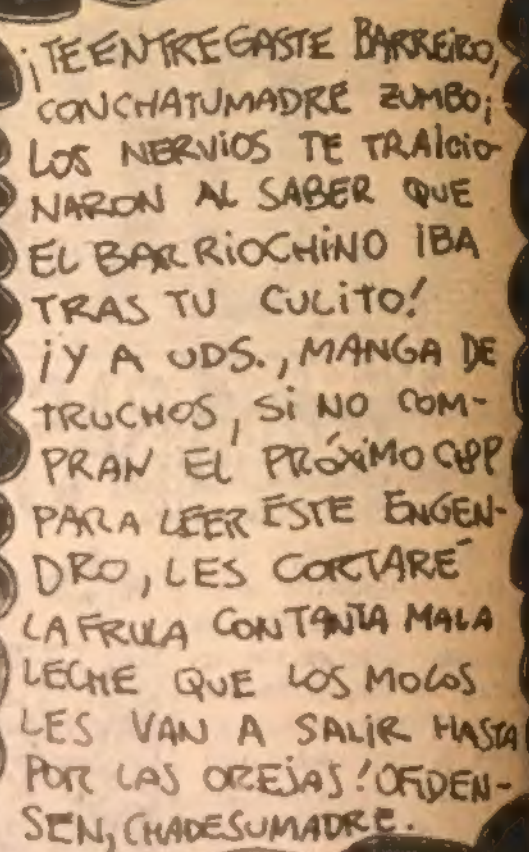 ¡TE ENTREGASTE BARREIRO,
CONCHATUMADRE ZUMBO;
LOS NERVIOS TE TRAICIO-
NARON AL SABER QUE
EL BARRIOCHINO IBA
TRAS TU CULITO!
¡Y A UDS., MANGA DE
TRUCHOS, SI NO COM-
PRAN EL PRÓXIMO
PARA LEER ESTE ENGEN-
DRO, LES CORTARÉ
LA FRULA CON TANTA MALA
LECHE QUE LOS MOCOS
LES VAN A SALIR HASTA
POR LAS OREJAS! OFIDEN-
SEN, CHADESUMADRE.